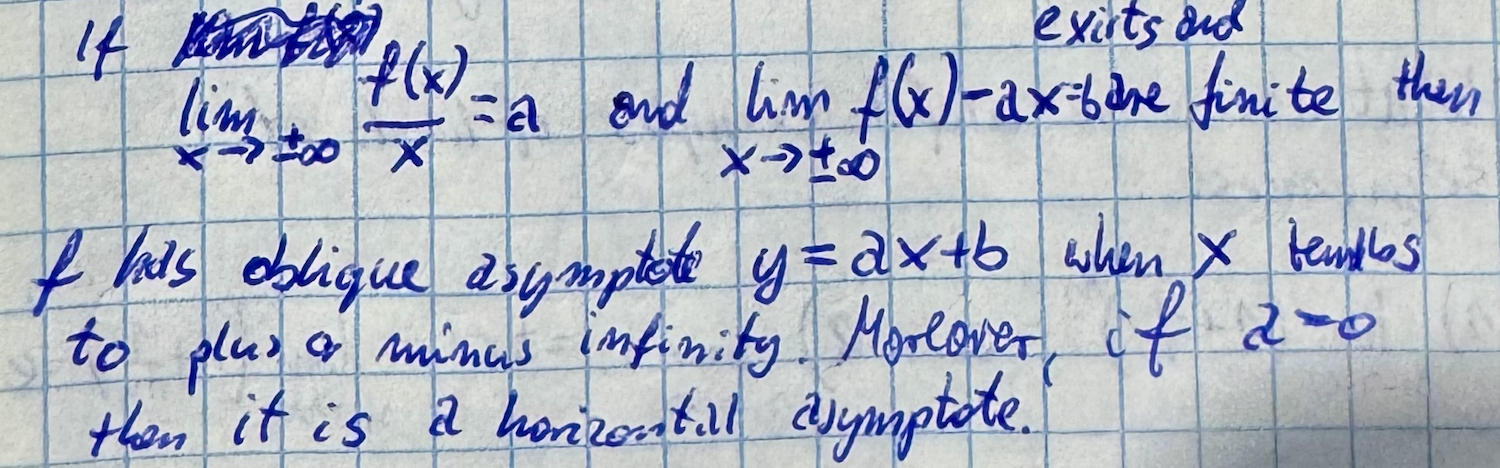 If lim_{x→±∞} f(x)/x = a and lim_{x→±∞} f(x)-ax=b exists and are finite then
f has oblique asymptote y=ax+b when x tends
to plus or minus infinity. Moreover, if a=0
then it is a horizontal asymptote.